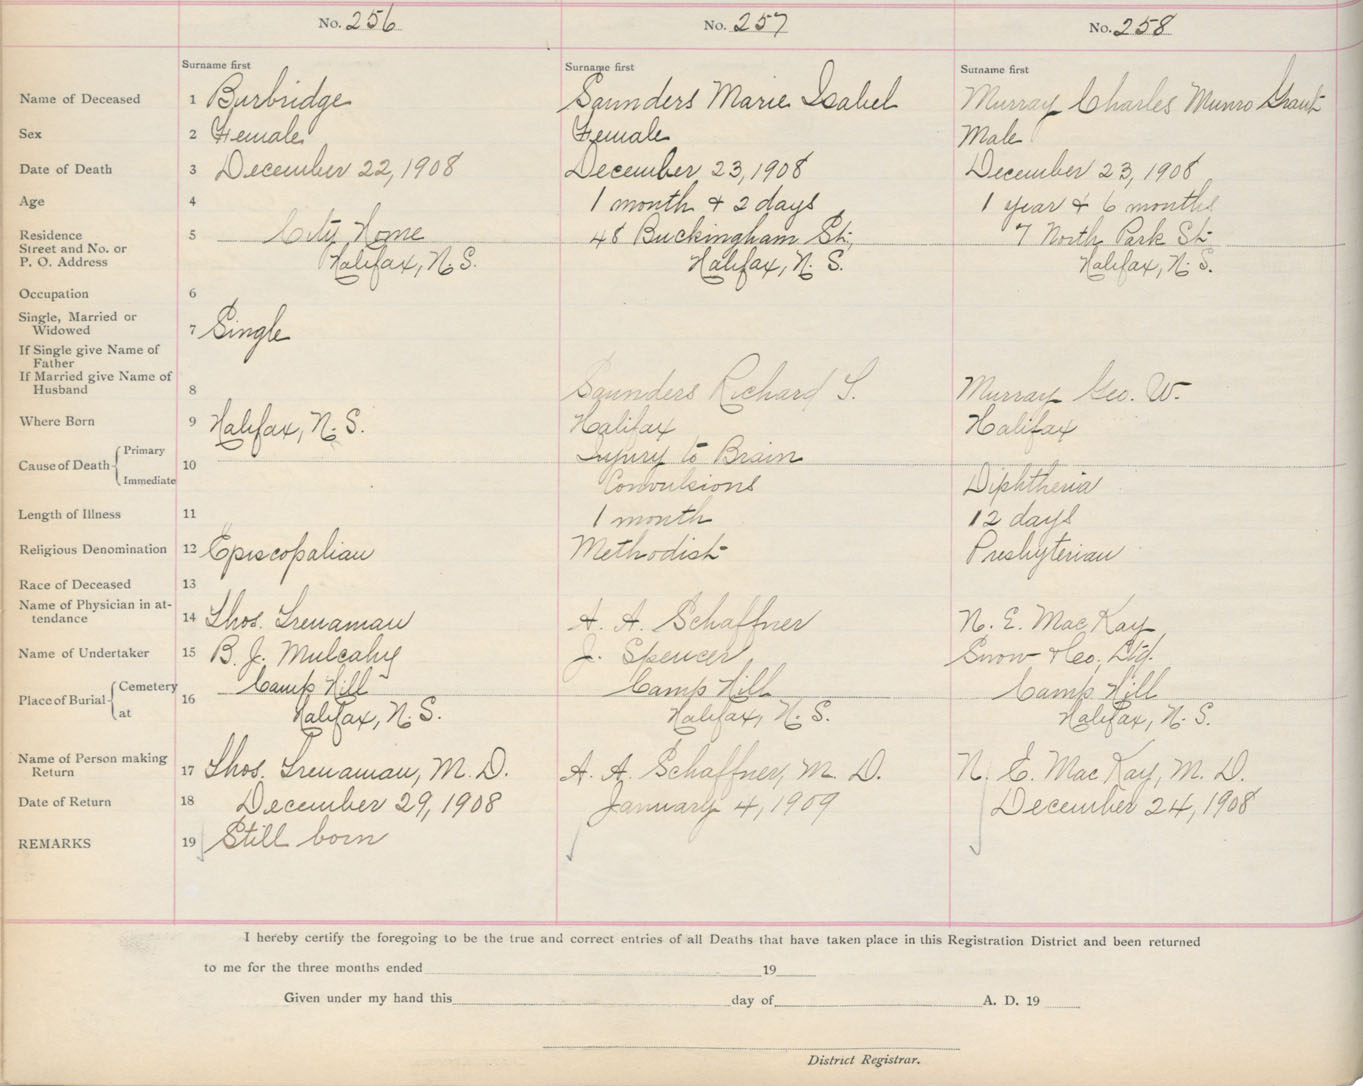 No. 256 No. 257 No. 258
Surname first Surname first Surname first
Name of Deceased 1 Burbridge Saunders Marie Isabel Murray Charles Munro Grant
Sex 2 Female Female Male
Date of Death 3 December 22, 1908 December 23, 1908 December 23, 1908
Age 4 1 month & 2 days 1 year & 6 months
Residence 5 City Home 48 Buckingham St., 7 North Park St.
Street and No. or
P. O. Address Halifax, N. S. Halifax, N. S. Halifax, N. S.
Occupation 6
Single, Married or
Widowed 7 Single
If Single give Name of
Father
If Married give Name of
Husband 8 Saunders Richard Murray Geo. W.
Where Born 9 Halifax, N. S. Halifax Halifax
Cause of Death Primary 10 Injury to Brain
Immediate Convulsions Diphtheria
Length of Illness 11 1 month 12 days
Religious Denomination 12 Episcopalian Methodist Presbyterian
Race of Deceased 13
Name of Physician in at-
tendance 14 Thos. Trenaman A. A. Schaffner N. E. MacKay
Name of Undertaker 15 B. J. Mulcahy J. Spencer Snow & Co., Ltd.
Place of Burial Cemetery 16 Camp Hill Camp Hill Camp Hill
at Halifax, N. S. Halifax, N. S. Halifax, N. S.
Name of Person making
Return 17 Thos. Trenaman, M. D. A. A. Schaffner, M. D. N. E. MacKay, M. D.
Date of Return 18 December 29, 1908 January 4, 1909 December 24, 1908
REMARKS 19 Still born
I hereby certify the foregoing to be the true and correct entries of all Deaths that have taken place in this Registration District and been returned
to me for the three months ended 19
Given under my hand this day of A. D. 19
District Registrar.